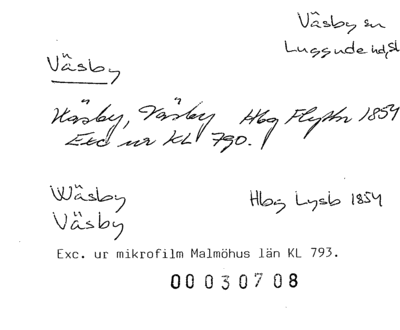 Väsby sn
Luggude hd, Sk
Väsby
Wäsby, Väsby Hbg Flyttn 1854
Exc ur KL 790.
Wäsby Hbg Lysb 1854
Väsby
Exc. ur mikrofilm Malmöhus län KL 793.
00030708